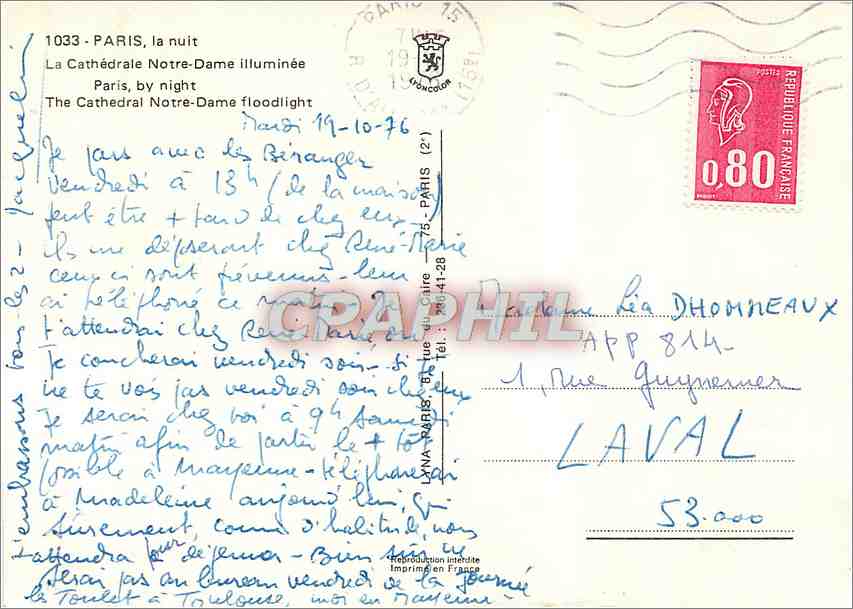 1033 - PARIS, la nuit
La Cathédrale Notre-Dame illuminée
Paris, by night
The Cathedral Notre-Dame floodlight
PARIS 15
LYONCOLOR
POSTES
REPUBLIQUE FRANÇAISE
0,80
Mardi 19-10-76
Je pars avec les Béranger
vendredi à 13h (de la maison)
peut être + tard de chez eux
ils me déposeront chez René-Marie
ceux ci sont prévenus - leur
ai téléphoné ce matin Je
t'attendrai chez René Marie où
Je coucherai vendredi soir - si Je
ne te vois pas vendredi soir chez eux
Je serai chez toi à 9h Samedi
matin afin de partir le + tôt
possible à Mayenne - téléphonerai
à Madeleine aujourd'hui, qui
Sûrement, comme d'habitude, nous
attendra pour déjeuner - Bien sûr ne
serai pas au bureau vendredi de la Journée
les Toulet à Toulouse, moi en Mayenne -
t'embrassons tous les 2 - Jacqueline
LYNA-PARIS, 8, rue du Caire - 75 - PARIS (2e)
Tél. : 236-41-28
CPAPHIL
Madame Léa DHOMMEAUX
APP 814 -
1, rue Guynemer
LAVAL
53.000
Reproduction interdite
Imprimé en France